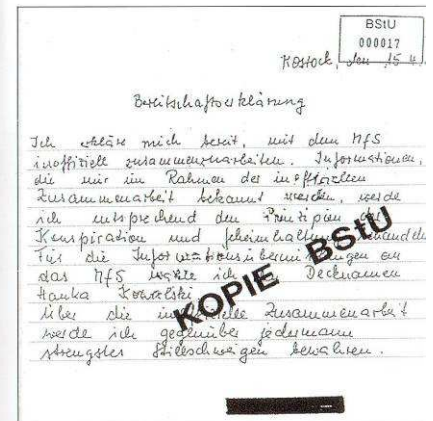 BStU
000017
Rostock, den 15.4.
Bereitschaftserklärung
Ich erkläre mich bereit, mit dem MfS
inoffiziell zusammenzuarbeiten. Informationen,
die mir im Rahmen der inoffiziellen
Zusammenarbeit bekannt werden, werde
ich entsprechend den Prinzipien der
Konspiration und Geheimhaltung behandeln.
Für die Informationsübermittlungen an
das MfS wähle ich den Decknamen
Hanka Kowalski
Über die inoffizielle Zusammenarbeit
werde ich gegenüber jedermann
strengstes Stillschweigen bewahren.
KOPIE BStU